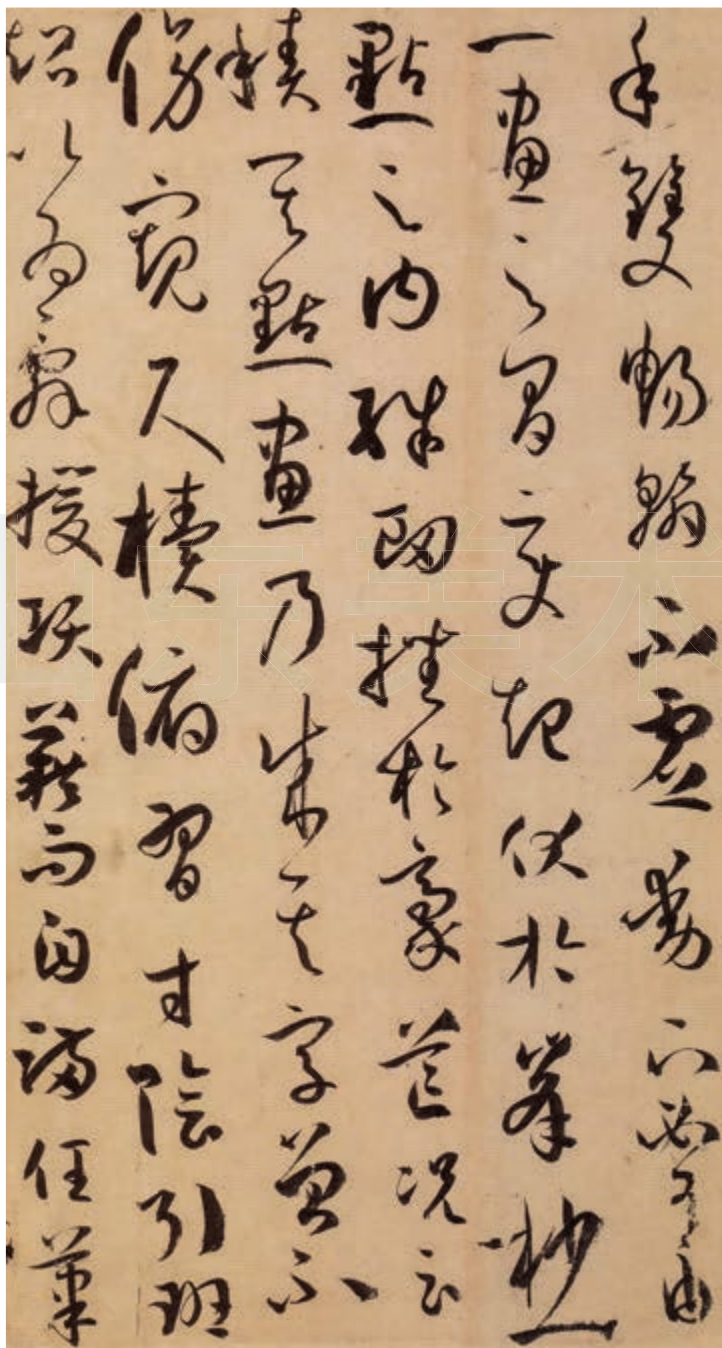 手雙暢翰不虛動下必有由
一畫之間變起伏於峯杪一
點之內殊衄挫於豪芒況云
積其點畫乃成其字曾不
傍窺尺櫝俯習寸陰引班
超以為辭援項籍而自滿任筆
山东美术